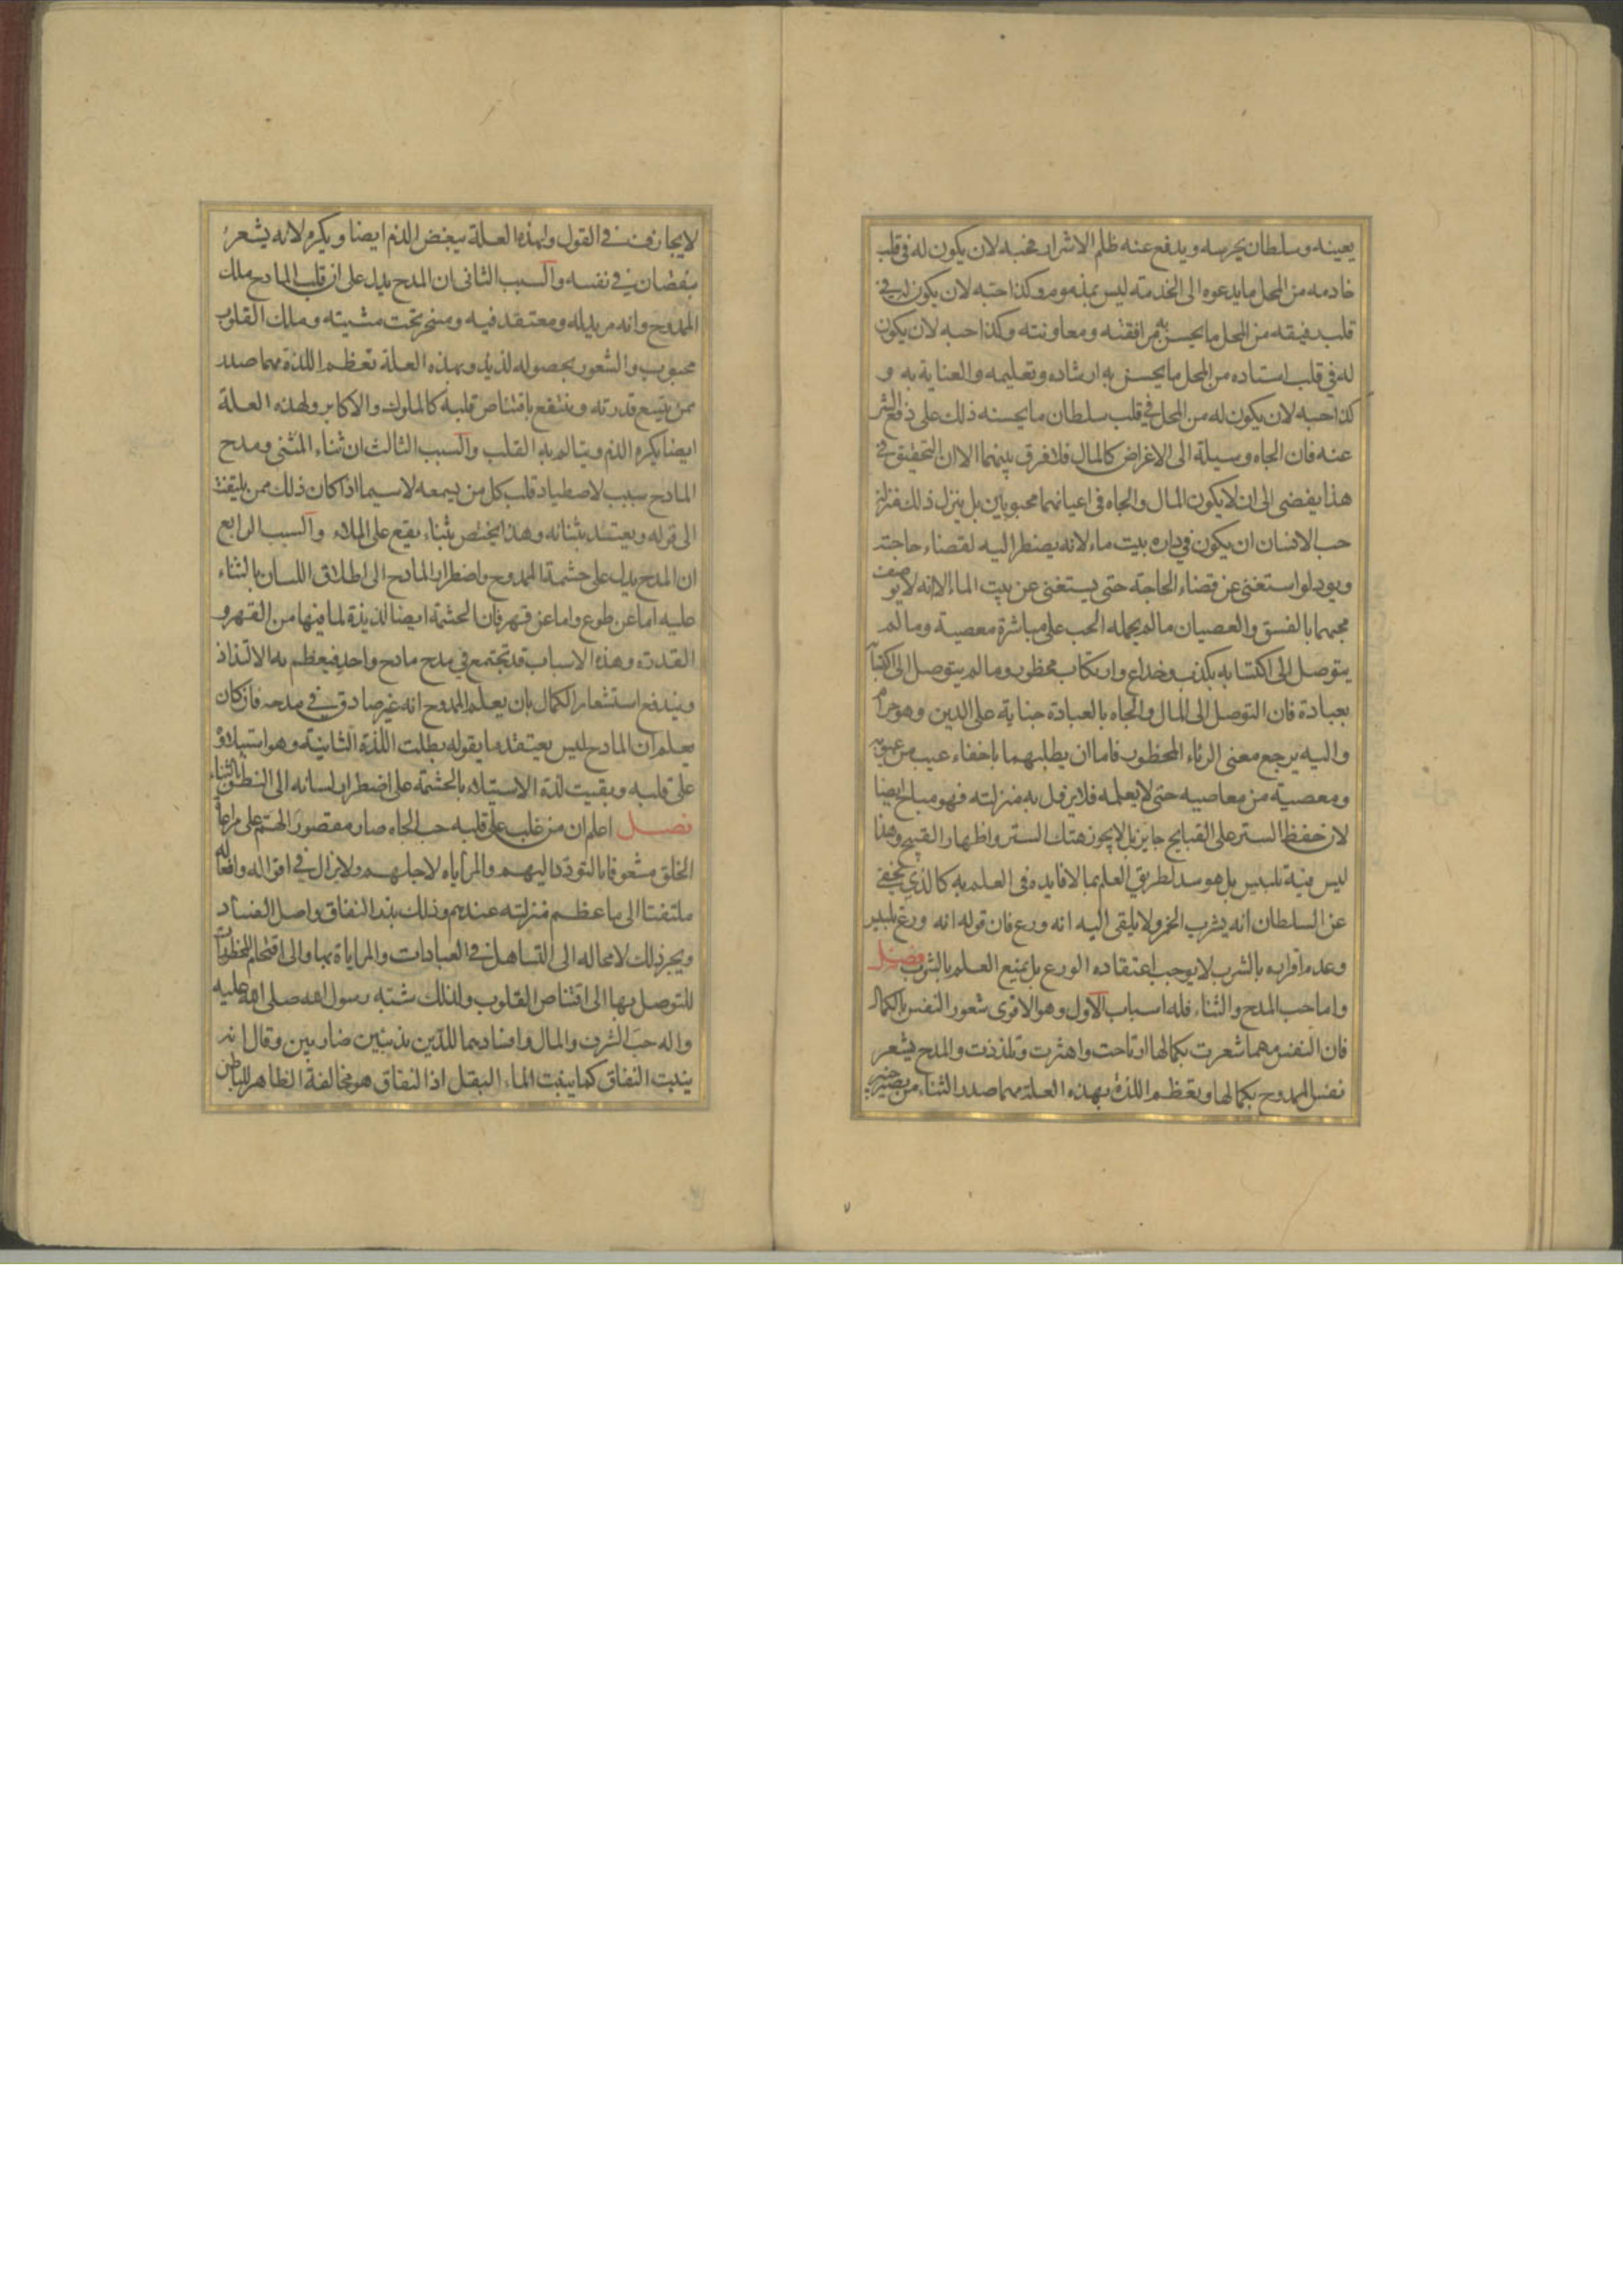 يعينه وسلطان يحرسه ويدفع عنه ظلم الاشرار فحبه لان يكون له في قلب
خادمه من المحل ما يدعوه الى الخدمته ليس بمذموم وكذا حبه لان يكون له في
قلب رفيقه من المحل ما يحسن به مرافقته ومعاونته وكذا حبه لان يكون
له في قلب استاده من المحل ما يحسن به ارشاده وتعليمه والعناية به و
كذا حبه لان يكون له من المحل في قلب سلطان ما يحسنه ذلك على دفع الشر
عنه فان الجاه وسيلة الى الاغراض كالمال فلا فرق بينهما الا ان التحقيق في
هذا يفضى الى ان لا يكون المال والجاه في اعيانهما محبوبين بل ينزل ذلك منزلة
حب الانسان ان يكون في داره بيت ماء لانه يضطر اليه لقضاء حاجته
ويود لو استغنى عن قضاء الحاجته حتى يستغنى عن بيت الماء الا انه لا يوصف
محبهما بالفسق والعصيان ما لم يحمله الحب على مباشرة معصية وما لم
يتوصل الى اكتسابه بكذب وخداع وارتكاب محظور وما لم يتوصل الى اكتسابه
بعبادة فان التوصل الى المال والجاه بالعبادة جناية على الدين وهو حرام
واليه يرجع معنى الرئاء المحظور فاما ان يطلبهما باخفاء عيب من عيوبه
ومعصية من معاصيه حتى لا يعلمه فلا يزول به منزلته فهو مباح ايضا
لان حفظ الستر على القبايح جايز بل لا يجوز هتك الستر واظهار القبيح وهذا
ليس فيه تلبيس بل هو سد لطريق العلم بما لا فايده في العلم به كالذي يخفى
عن السلطان انه يشرب الخمر ولا يلقى اليه انه ورع فان قوله انه ورع تلبيس
وعدم اقراره بالشرب لا يوجب اعتقاده الورع بل يمنع العلم بالشرب فصل
واما حب المدح والثناء فله اسباب الاول وهو الاقوى شعور النفس بالكمال
فان النفس مهما شعرت بكمالها ارتاحت واهتزت وتلذذت والمدح يشعر
نفس الممدوح بكمالها وتعظم اللذة بهذه العلة مهما صدر الثناء من بصير خبير
لا يجازف في القول ولهذه العلة يبغض الذم ايضا ويكره لانه يشعر
بنقصان في نفسه والسبب الثاني ان المدح يدل على ان قلب المادح ملك
الممدوح وانه مريد له ومعتقد فيه ومسخر تحت مشيته وملك القلوب
محبوب والشعور بحصوله لذيذ وبهذه العلة تعظم اللذة مهما صدر
ممن يتسع قدرته وينتفع باقتناص قلبه كالملوك والاكابر ولهذه العلة
ايضا يكره الذم ويتالم به القلب والسبب الثالث ان ثناء المثنى ومدح
المادح سبب لاصطياد قلب كل من يسمعه لا سيما اذا كان ذلك ممن يلتفت
الى قوله ويعتد بثنائه وهذا يختص بثناء يقع على الملاء والسبب الرابع
ان المدح يدل على حشمة الممدوح واضطرار المادح الى اطلاق اللسان بالثناء
عليه اما عن طوع واما عن قهر فان الحشمة ايضا لذيذة لما فيها من القهر و
القدرة وهذه الاسباب قد تجتمع في مدح مادح واحد فيعظم به الالتذاذ
ويندفع استشعار الكمال بان يعلم الممدوح انه غير صادق في مدحه فان كان
يعلم ان المادح ليس يعتقد ما يقوله بطلت اللذة الثانية وهو استيلاؤه
على قلبه وبقيت لذة الاستيلاء بالحشمة على اضطرار لسانه الى النطق بالثناء
فصل اعلم ان من غلب على قلبه حب الجاه صار مقصور الهم على مراعاة
الخلق مشعوفا بالتودد اليهم والمراياه لاجلهم ولا يزال في اقواله وافعاله
ملتفتا الى ما عظم منزلته عندهم وذلك بذر النفاق واصل الفساد
ويجر ذلك لا محاله الى التساهل في العبادات والمراياة بها والى اقتحام المحظورات
للتوصل بها الى اقتناص القلوب ولذلك شبه رسول الله صلى الله عليه
واله حب الشرف والمال وافسادهما للدين بذئبين ضاريين وقال انه
ينبت النفاق كما ينبت الماء البقل اذ النفاق هو مخالفة الظاهر للباطن